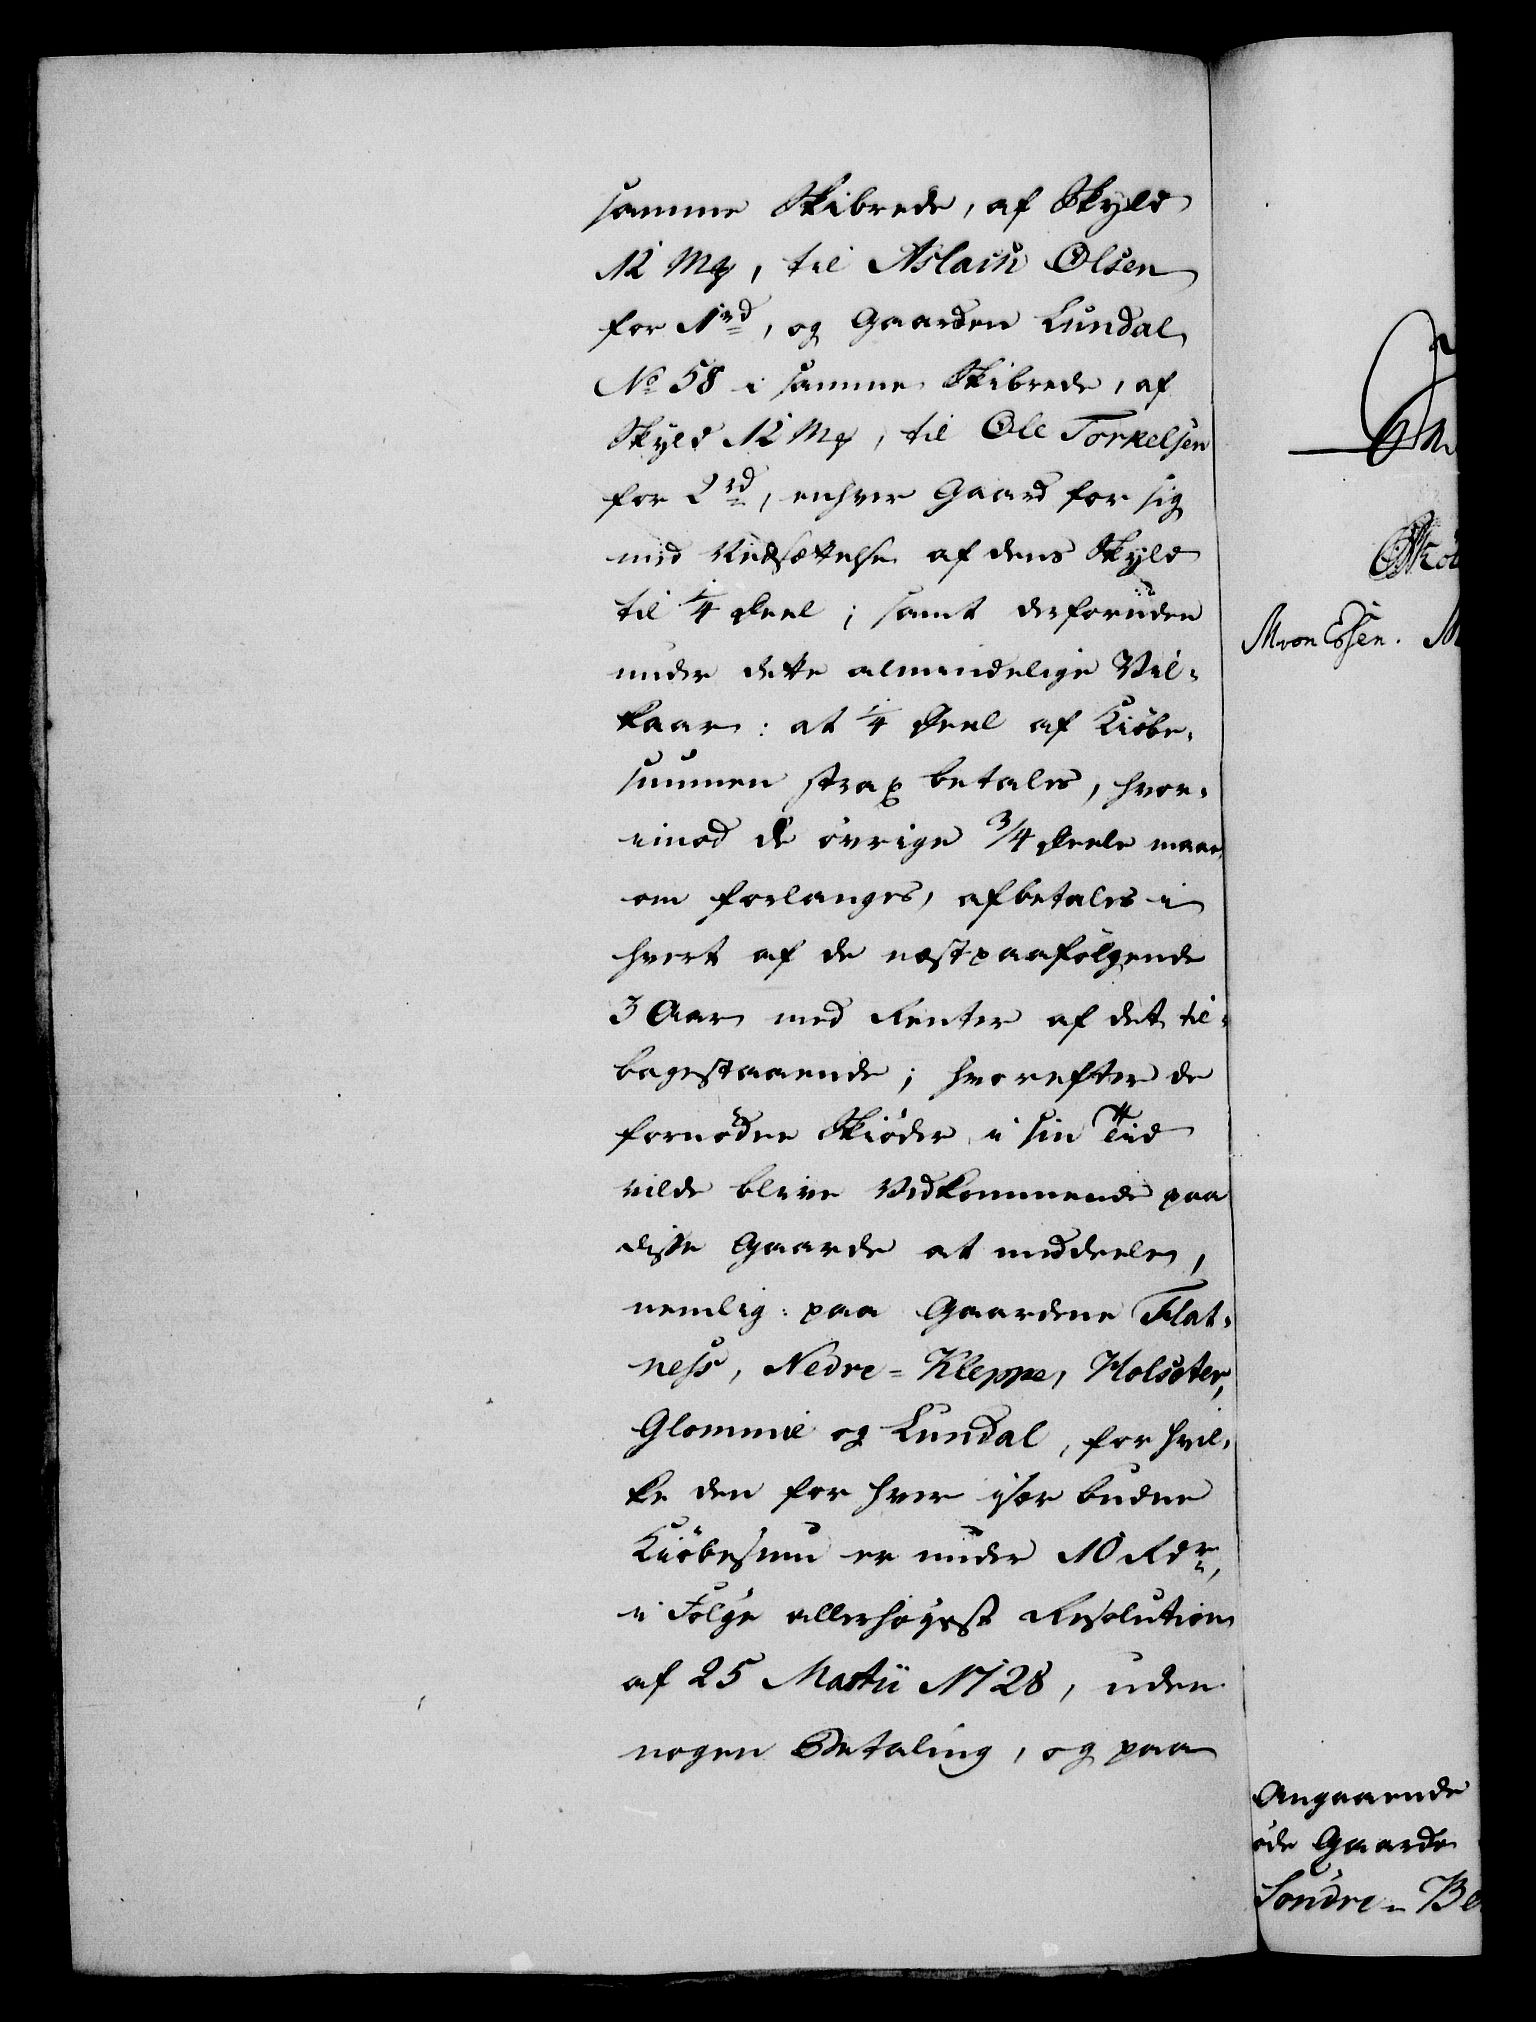 samme Skibrede, af Skyld
12 Mſ, til Aslach Olsen
for 1 rd, og Gaarden Lundal
No 58 i samme Skibrede, af
Skyld 12 Mſ, til Ole Torkelsen
for 2 rd, enhver Gaard for sig
med Nedsættelse af dens Skyld
til 1/4 Deel; samt desforuden
under dette almindelige Vil-
kaar: at 1/4 Deel af Kiöbe-
summen strax betales, hvor-
imod de övrige 3/4 Deele maae,
om forlanges, afbetales i
hvert af de næstpaafölgende
3 Aar med Renter af det til-
bagestaaende; hvorefter de
fornödne Skiöder i sin Tiid
vilde blive Vedkommende paa
disse Gaarde at meddeele,
nemlig: paa Gaardene Flat-
ness, Nedre-Kleppe, Holseter,
Glomme og Lundal, for hvil-
ke den for hver især budne
Kiöbesum er under 10 Rdr,
i Fölge allerhöyest Resolution
af 25 Martii 1728, uden
nogen Betaling, og paa
M von Essen.
Angaaende
öde Gaarde
Söndre-Be